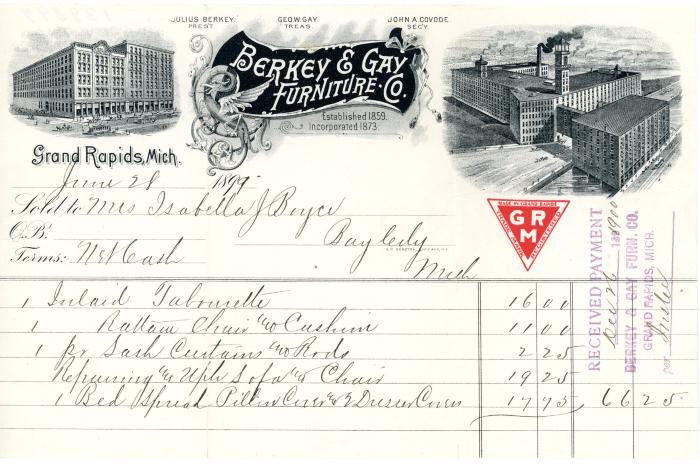 JULIUS BERKEY. GEO.W.GAY. JOHN A.COVODE.
PRES'T. TREAS. SEC'Y.
BERKEY & GAY
FURNITURE CO.
Established 1859.
Incorporated 1873.
Grand Rapids, Mich.
June 28 1899
Sold to Mrs Isabella J Boyce
O.B. Bay City
Terms: Net Cash Mich
MADE IN GRAND RAPIDS
GRM
TRADE MARK REGISTERED
1 Inlaid Tabourette 16 00
1 Rattan Chair & Cushion 11 00
1 pr Sash Curtains & Rods 2 25
Repairing & Uphl Sofa & Chair 19 25
1 Bed Spread Pillow Cover & 2 Dresser Covers 17 75 66 25
RECEIVED PAYMENT
Dec 26 1900
BERKEY & GAY FURN. CO.
GRAND RAPIDS, MICH.
per